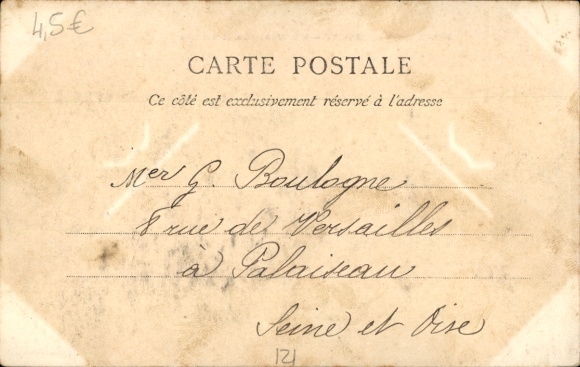 4,5€
CARTE POSTALE
Ce côté est exclusivement réservé à l'adresse
Mer G. Boulogne
8 rue de Versailles
à Palaiseau
Seine et Oise
121